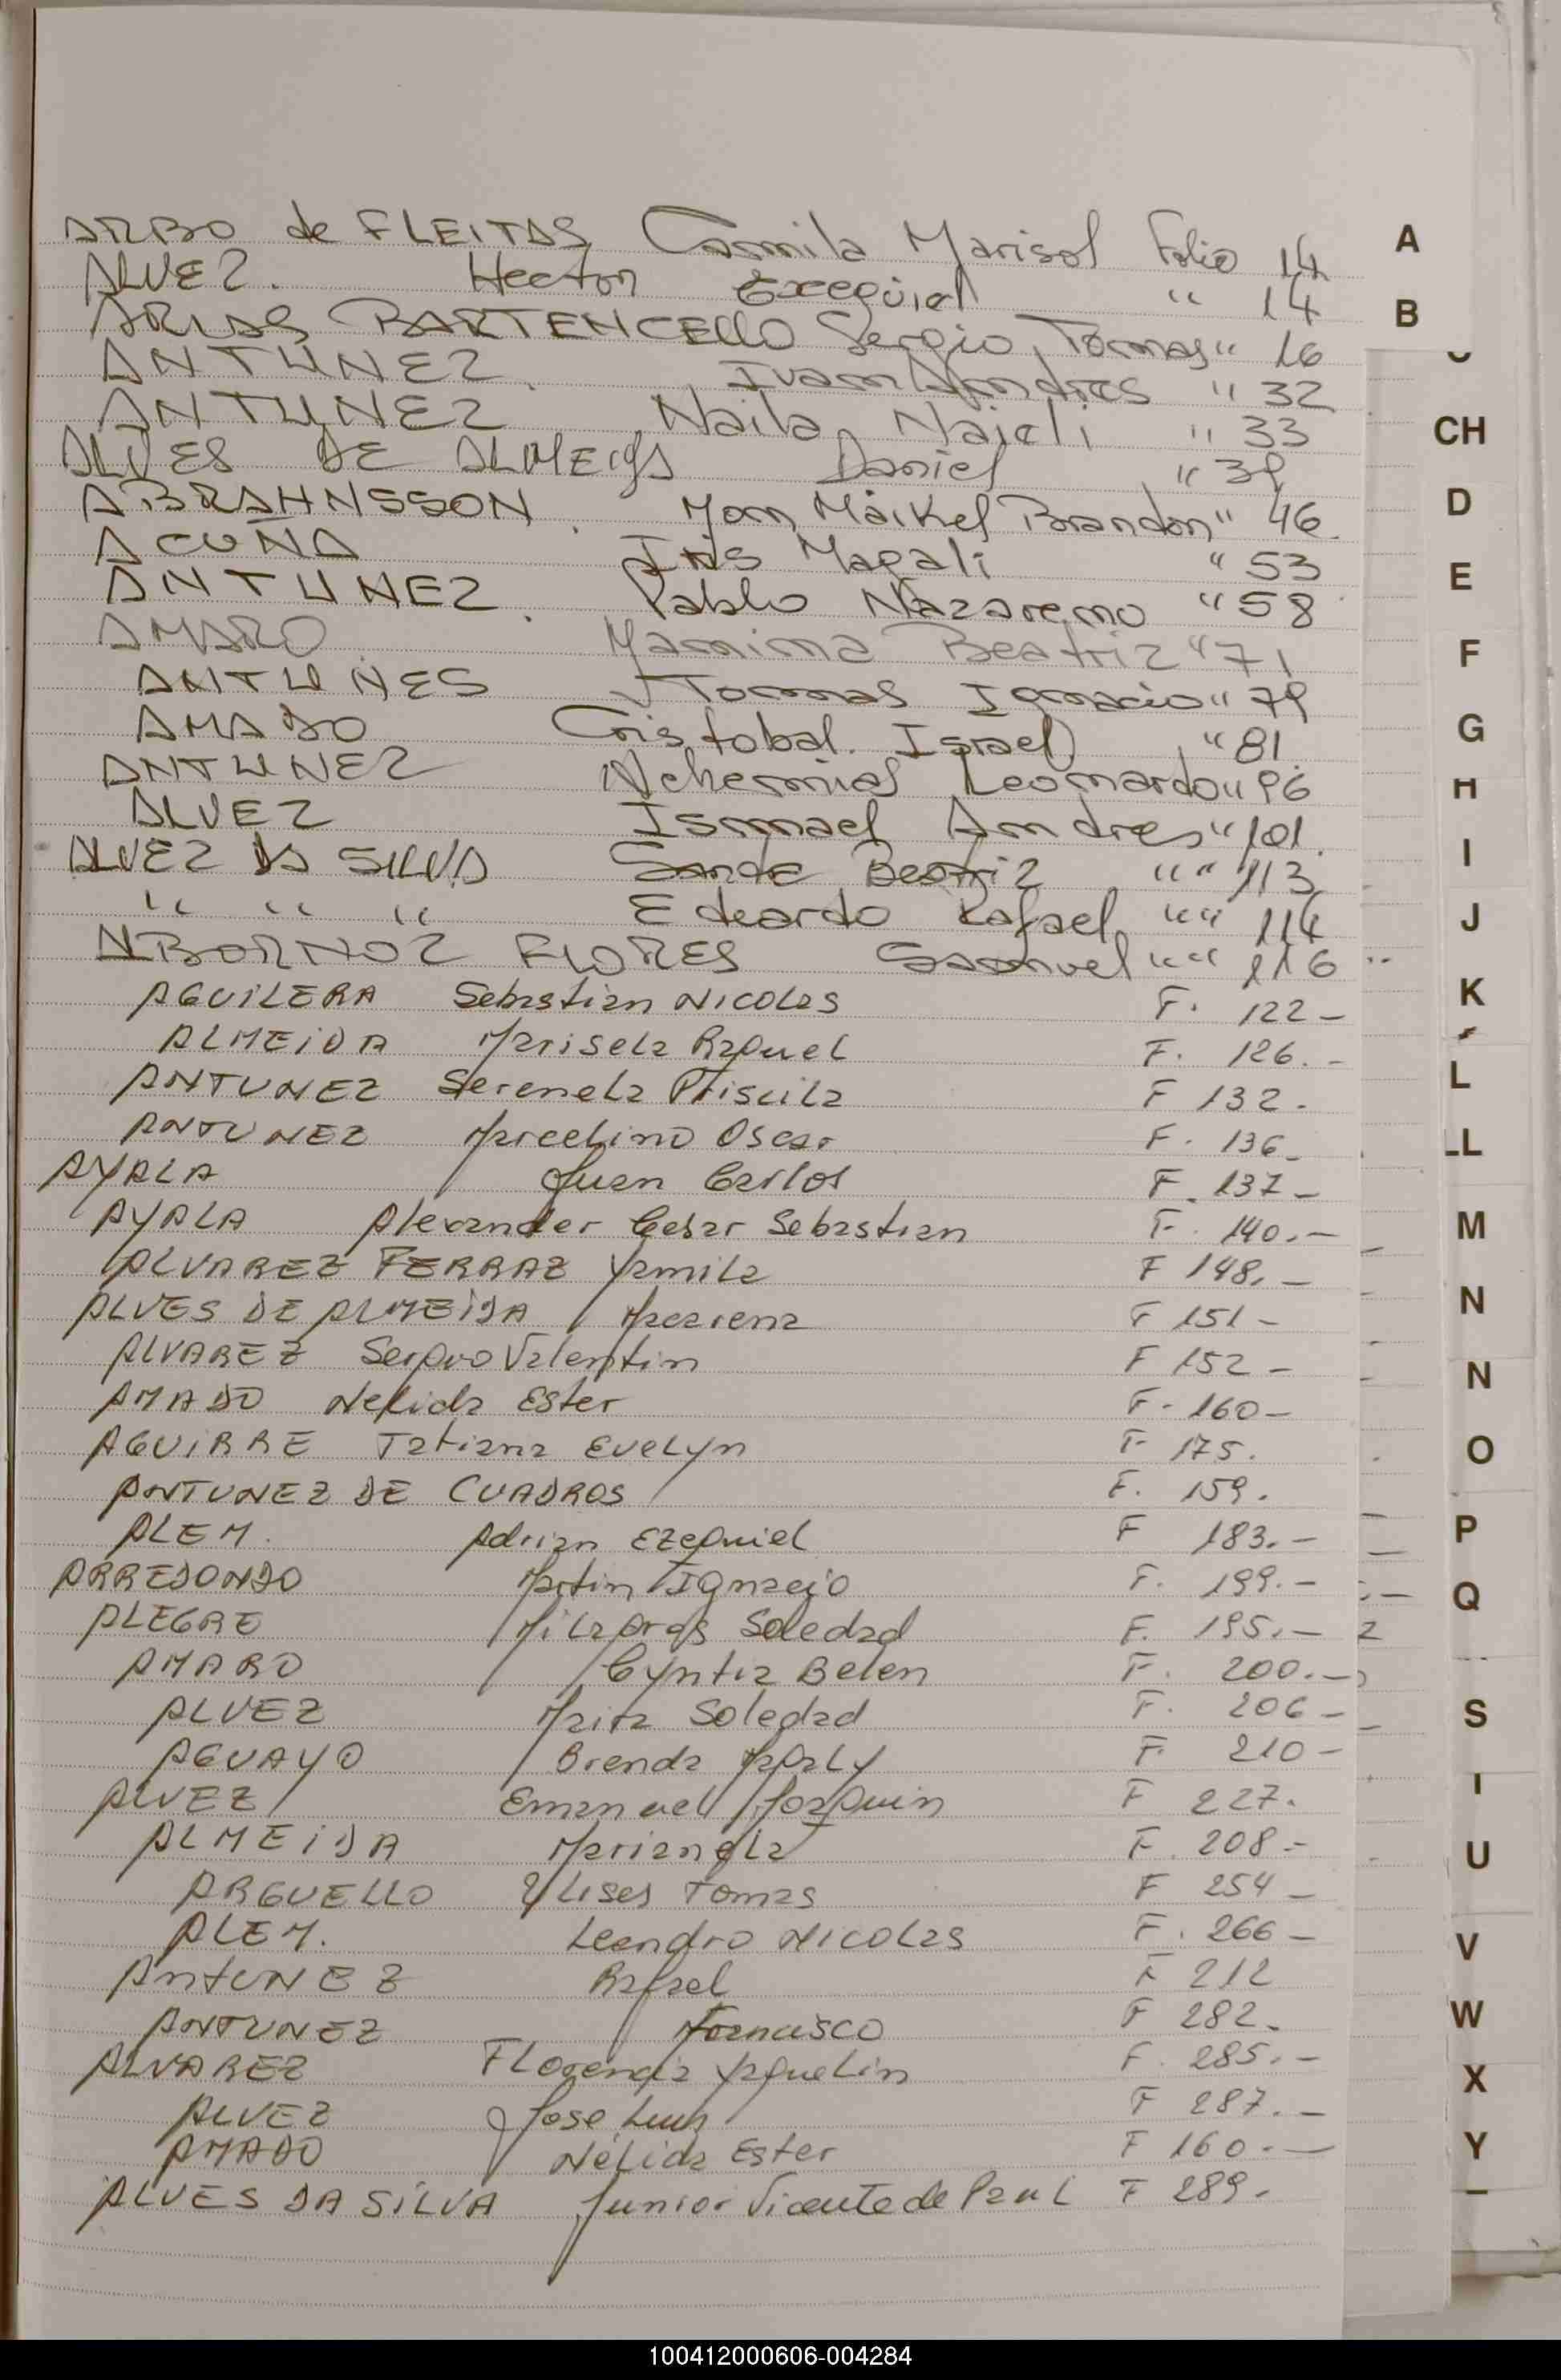 ARBO de FLEITAS Camila Marisol Folio 14
ALVEZ. Hector Exequiel " 14
ARIAS BARTENCELLO Sergio Tomas " 16
ANTUNEZ. Ivan Andres " 32
ANTUNEZ Naila Naieli " 33
ALVES DE ALMEIDA Daniel " 39
ABRAHNSSON. Yon Maikel Brandon " 46
ACUÑA Iris Magali " 53
ANTUNEZ. Pablo Nazareno " 58
AMARO Yanina Beatriz " 71
ANTUNES Tomas Ignacio " 79
AMADO Cristobal. Israel " 81
ANTUNEZ Nehemias Leonardo " 96
ALVEZ Ismael Andres " 101
ALVEZ DA SILVA Beatriz " " 113
" " " Eduardo Rafael " " 114
ALBORNOZ FLORES Samuel " " 116
AGUILERA Sebastian Nicolas F. 122 -
ALMEIDA Marisela Raquel F. 126. -
ANTUNEZ Serenela Priscila F 132.
ANTUNEZ Marcelino Oscar F. 136 -
AYALA Juan Carlos F. 137 -
AYALA Alexander Cesar Sebastian F. 140. -
ALVAREZ FERRAZ Yamila F 148. -
ALVES DE ALMEIDA Macarena F 151 -
ALVAREZ Sergio Valentin F 152 -
AMADO Nelida Ester F. 160 -
AGUIRRE Tatiana Evelyn F 175.
ANTUNEZ DE CUADROS F. 159.
ALEM. Adrian Ezequiel F 183. -
ARREDONDO Martin Ignacio F. 199. -
ALEGRE Milagros Soledad F. 195. -
AMARO Cyntia Belen F. 200. -
ALVEZ Maira Soledad F. 206 -
AGUAYO Brenda Magaly F. 210 -
ALVEZ Emanuel Joaquin F 227.
ALMEIDA Mariangla F. 208 -
ARGUELLO Ulises Tomas F 254 -
ALEM. Leandro Nicolas F. 266 -
ANTUNEZ Rafael F 212
ANTUNEZ F 282.
ALVAREZ Florencia Yaquelin F. 285. -
ALVEZ Jose Luis F 287. -
AMADO Nélida Ester F 160. -
ALVES DA SILVA Junior Vicente de Paul F 289.
A
B
CH
D
E
F
G
H
I
J
K
L
LL
M
N
N
O
P
Q
S
U
V
W
X
Y
100412000606-004284